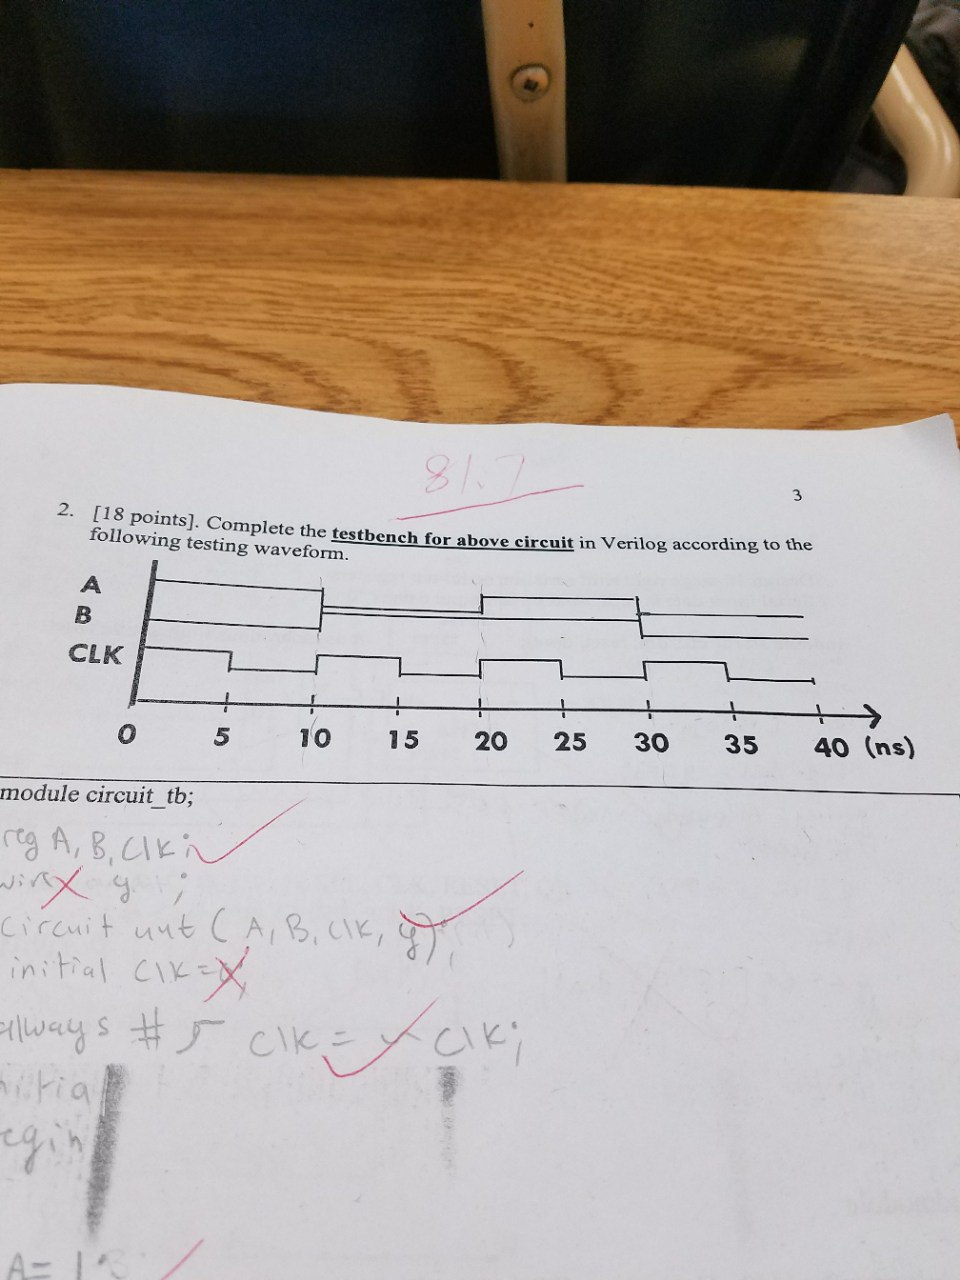 81.7
3
2. [18 points]. Complete the testbench for above circuit in Verilog according to the
following testing waveform.
A
B
CLK
0 5 10 15 20 25 30 35 40 (ns)
module circuit_tb;
reg A, B, Clk;
wire y ;
circuit uut ( A, B, Clk, y);
initial Clk =
always # 5 Clk = ~ Clk;
initial
begin
A= 1